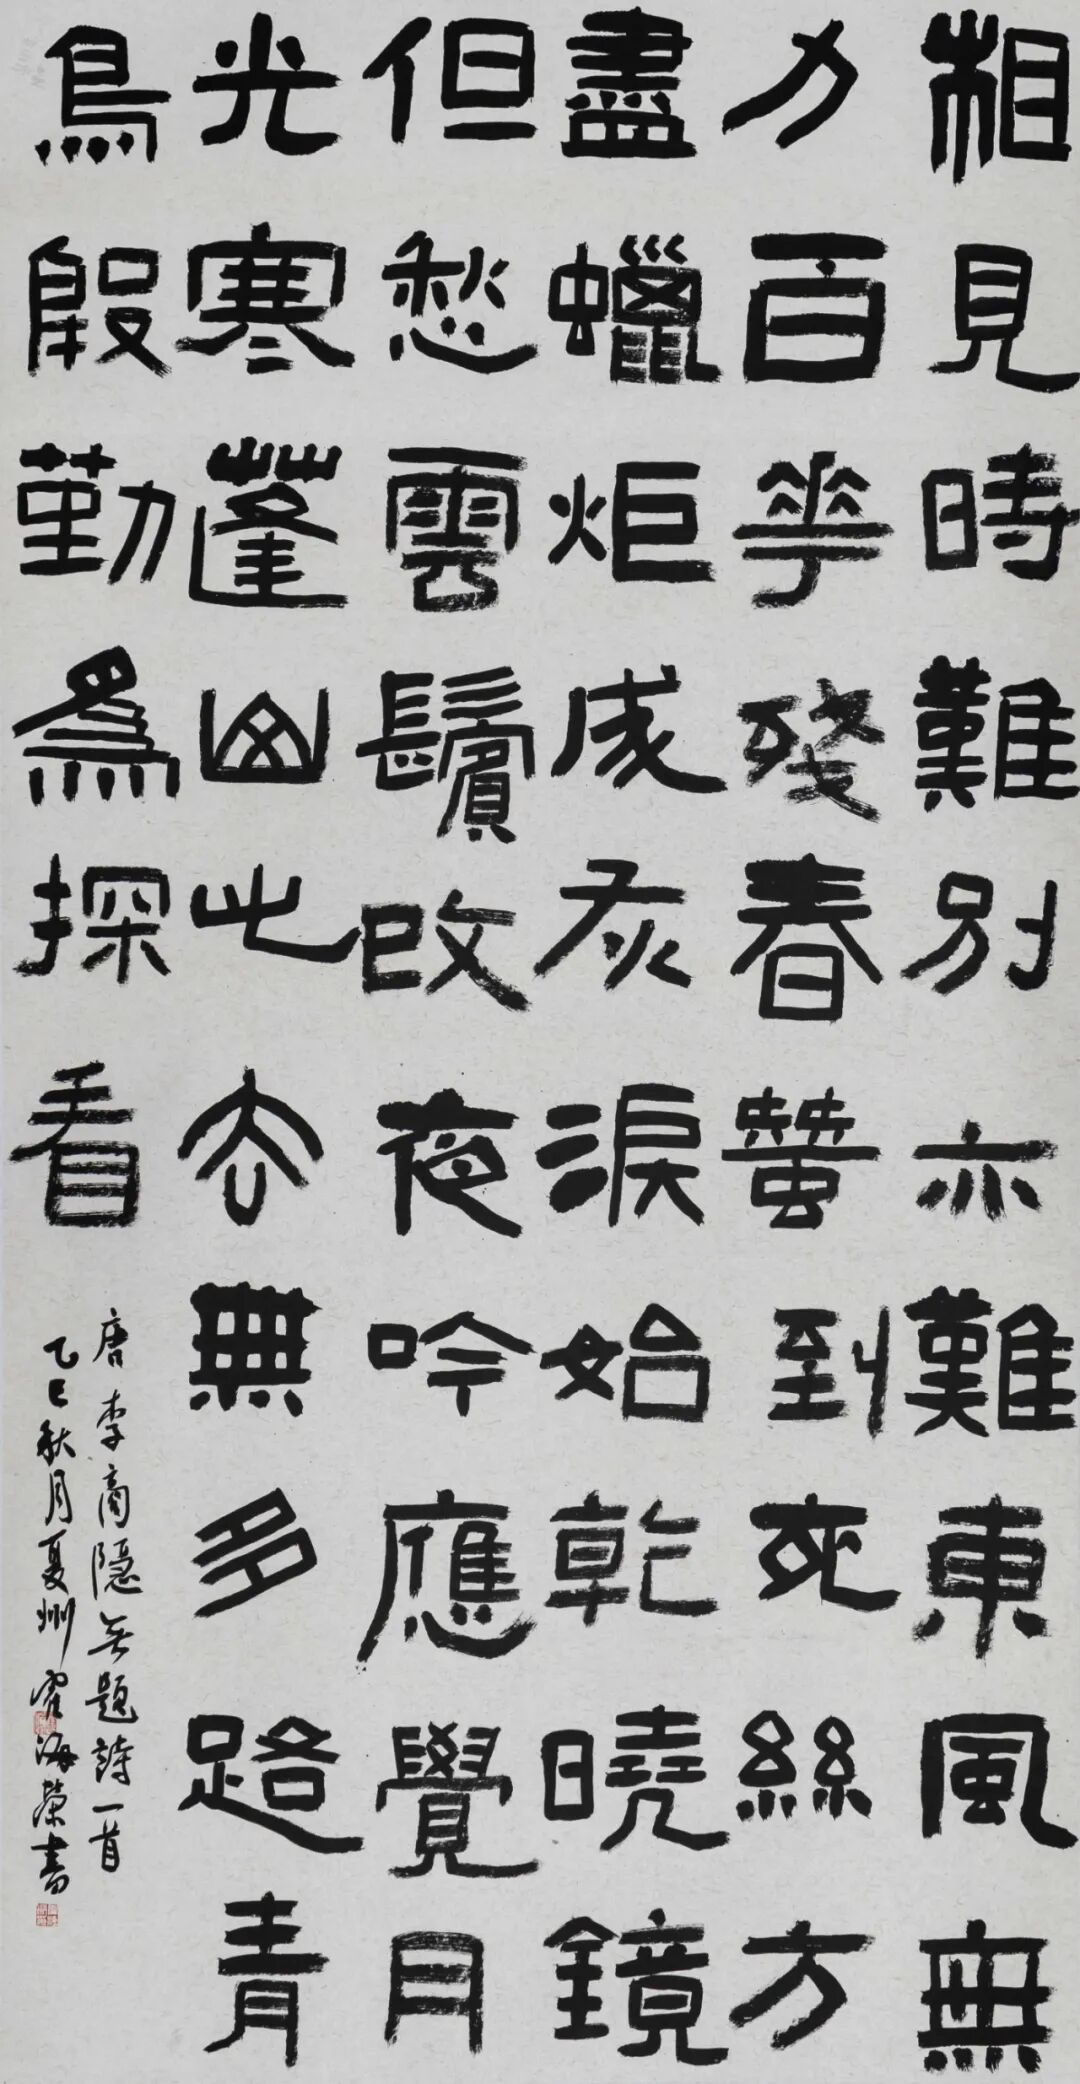 相見時難別亦難東風無
力百華殘春蠶到死絲方
盡蠟炬成灰淚始乾曉鏡
但愁雲鬢改夜吟應覺月
光寒蓬山此去無多路青
鳥殷勤為探看
唐李商隱無題詩一首
乙巳秋月夏州海榮書